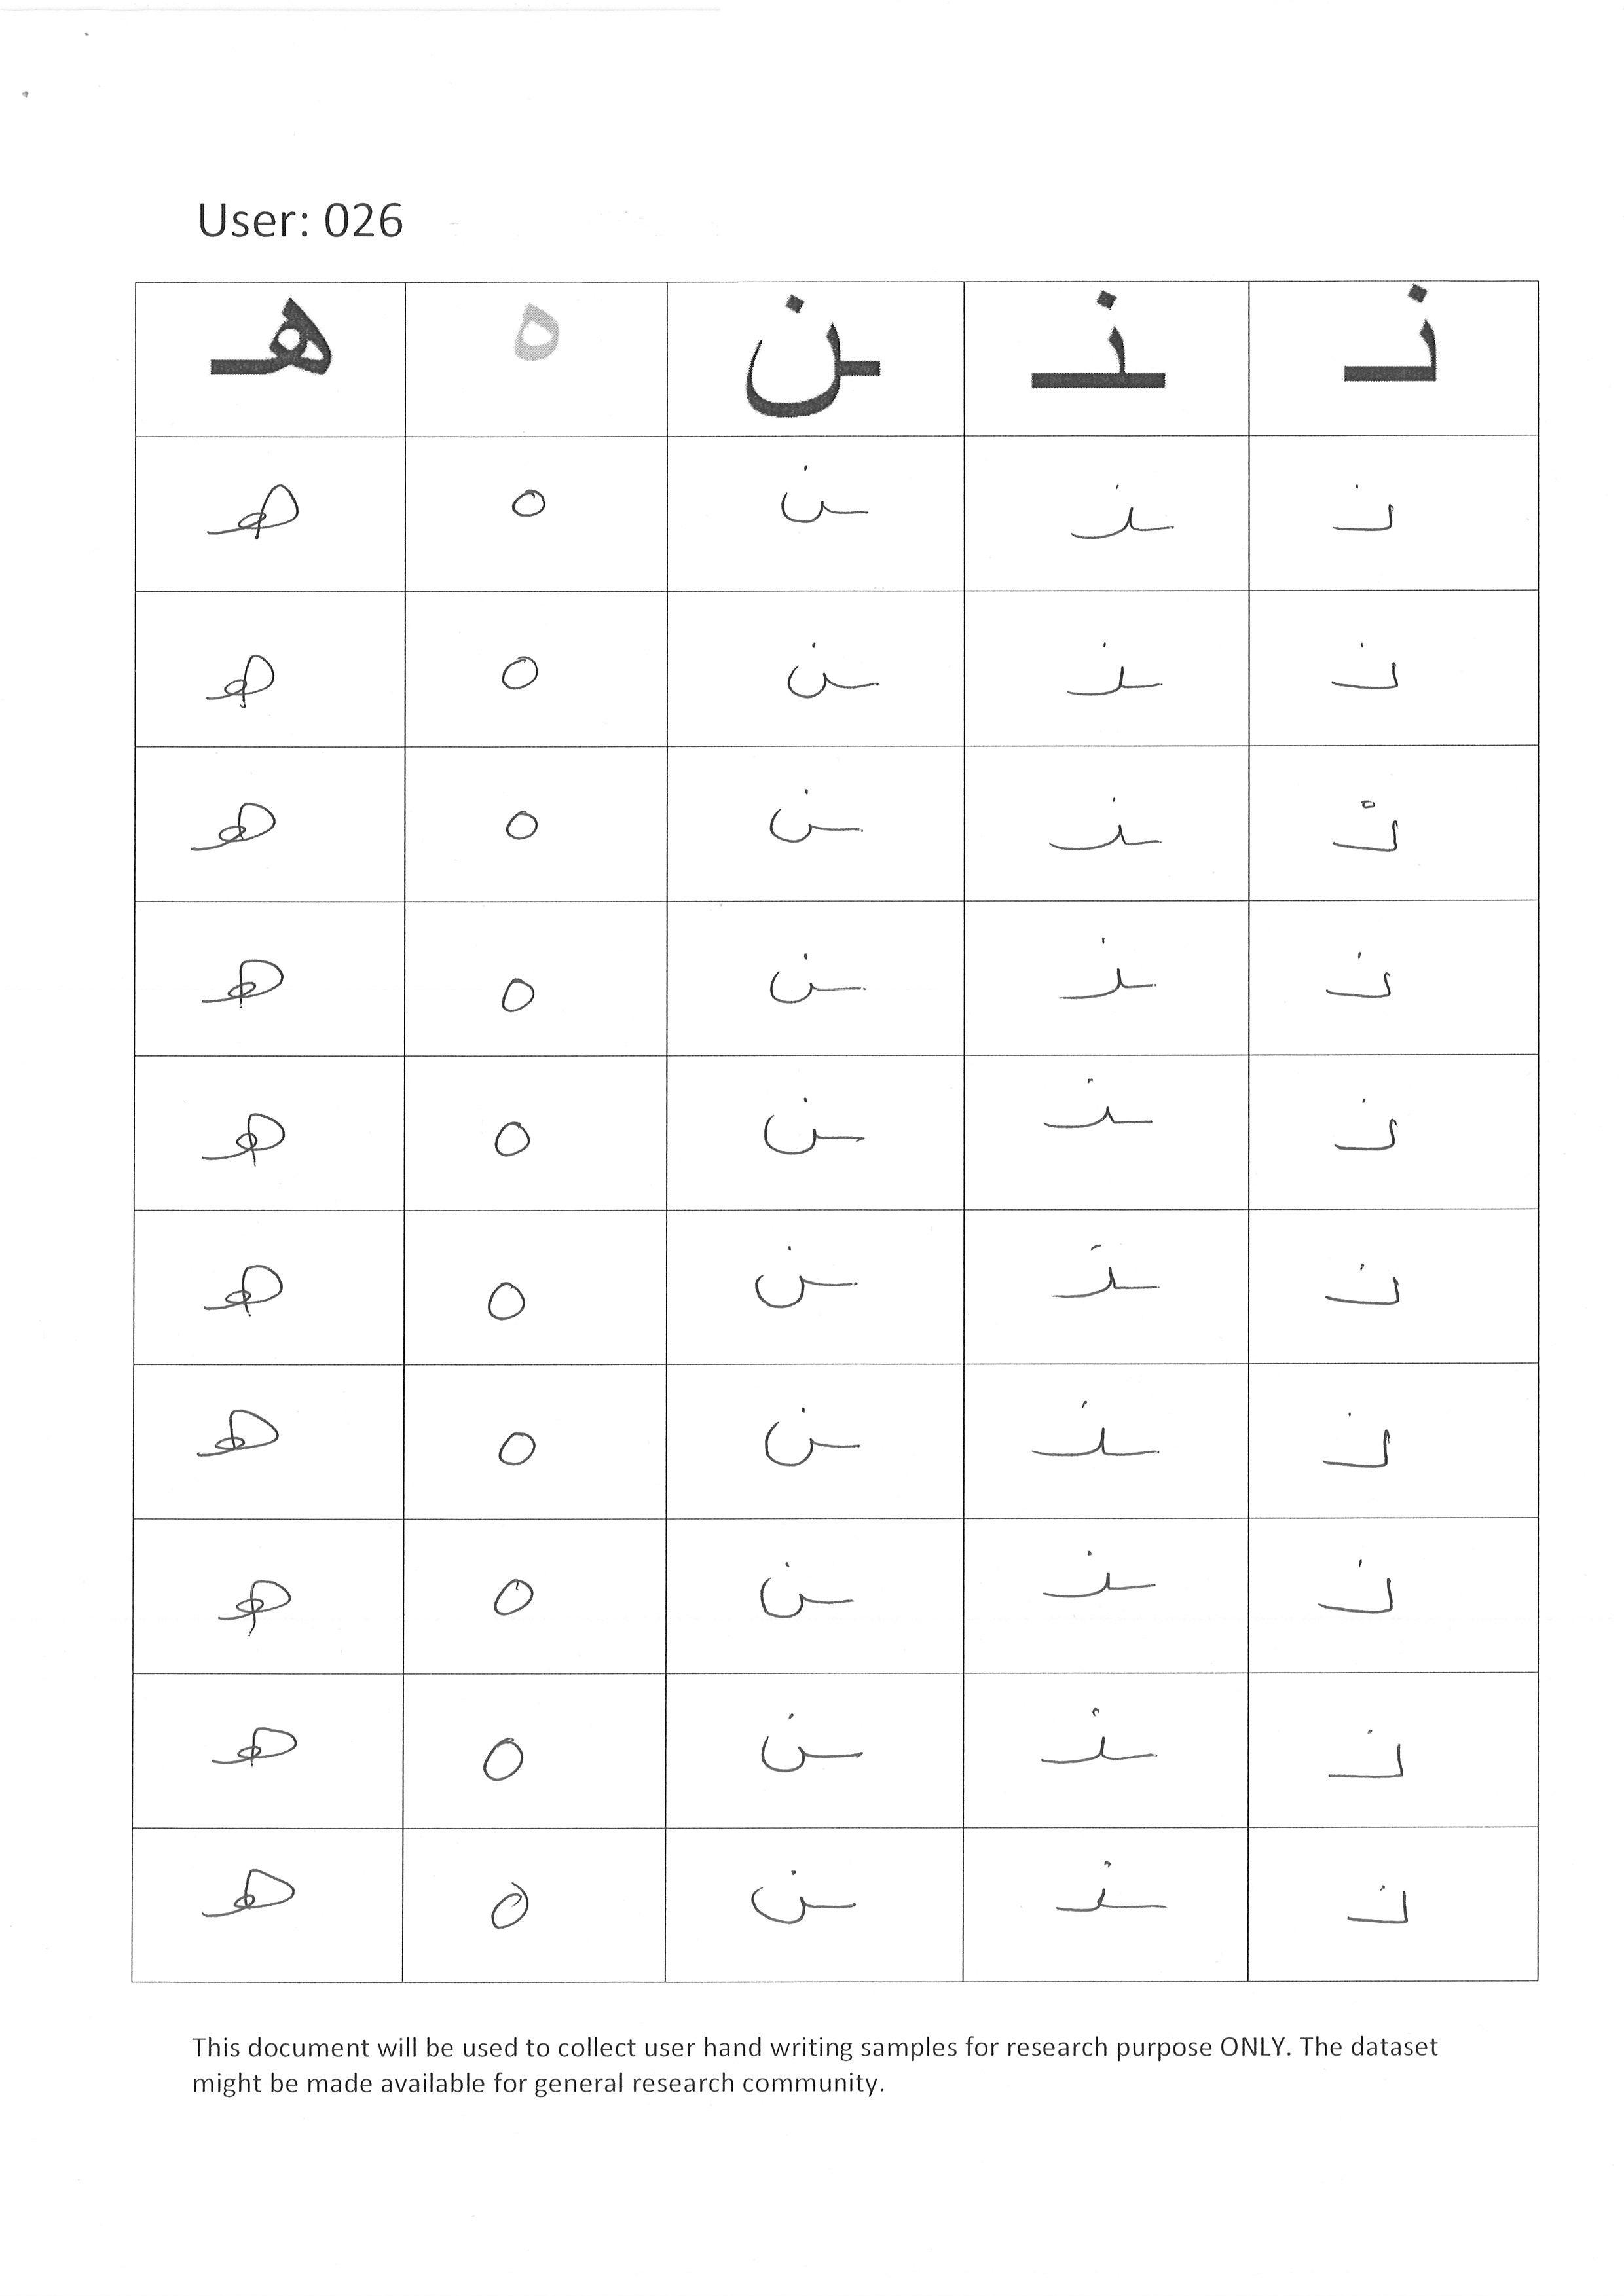 User: 026
نـ ـنـ ـن ه هـ
نـ ـنـ ـن ه هـ
نـ ـنـ ـن ه هـ
نـ ـنـ ـن ه هـ
نـ ـنـ ـن ه هـ
نـ ـنـ ـن ه هـ
نـ ـنـ ـن ه هـ
نـ ـنـ ـن ه هـ
نـ ـنـ ـن ه هـ
نـ ـنـ ـن ه هـ
نـ ـنـ ـن ه هـ
This document will be used to collect user hand writing samples for research purpose ONLY. The dataset
might be made available for general research community.